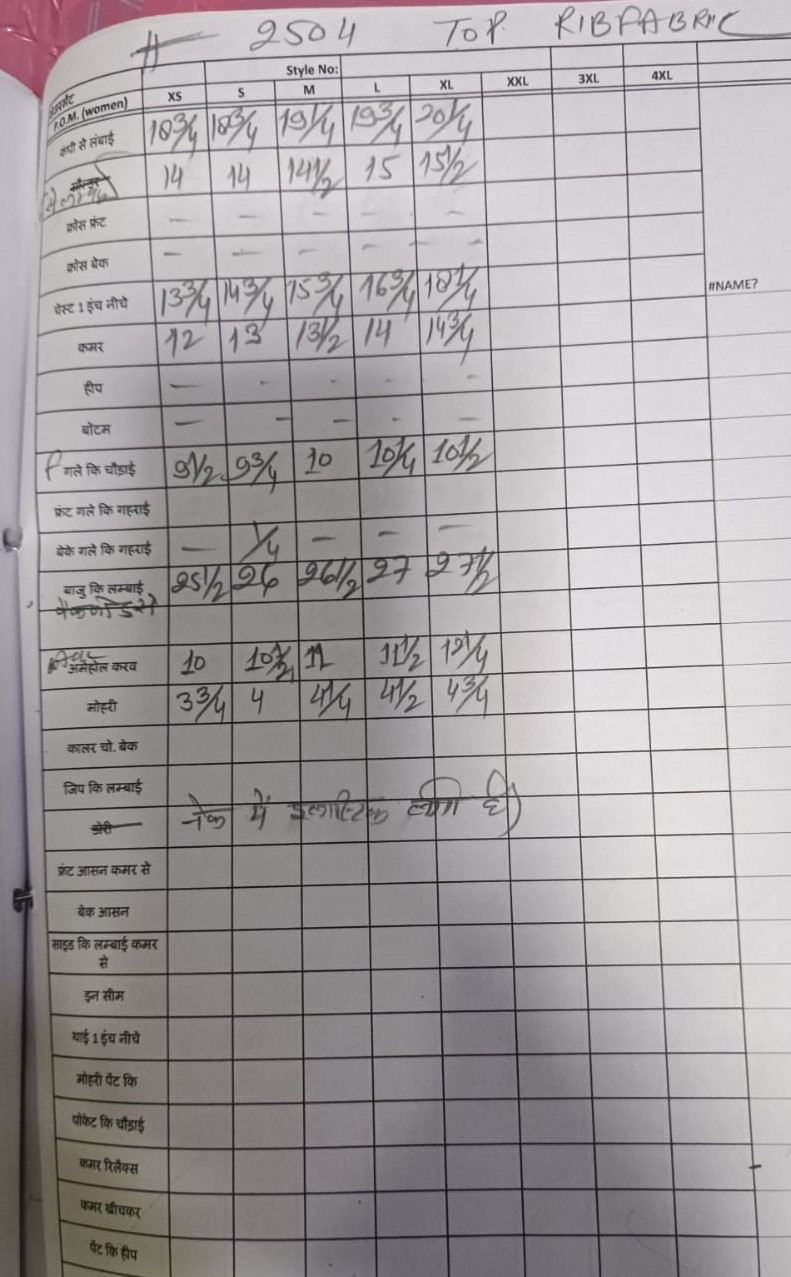 # 2504 TOP RIBFABRIC
Style No:
P.O.M. (women) XS S M L XL XXL 3XL 4XL
से लंबाई 18 3/4 18 3/4 19 1/4 19 3/4 20 1/4
14 14 14 1/2 15 15 1/2
क्रोस फ्रंट - - - - -
क्रोस बेक - - - - -
चेस्ट 1 इंच नीचे 13 3/4 14 3/4 15 3/4 16 3/4 18 1/4
#NAME?
कमर 12 13 13 1/2 14 14 3/4
हीप - - - - -
बोटम - - - - -
F गले कि चौडाई 9 1/2 9 3/4 10 10 1/4 10 1/2
फ्रंट गले कि गहराई
बेके गले कि गहराई - 1/4 - - -
बाजु कि लम्बाई 25 1/2 26 26 1/2 27 27 1/2
अर्महोल करव 10 10 1/2 11 11 1/2 12 1/4
मोहरी 3 3/4 4 4 1/4 4 1/2 4 3/4
कालर चो. बेक
जिप कि लम्बाई
डोरी नेक में इलास्टिक लगी है
फ्रंट आसन कमर से
बेक आसन
साइड कि लम्बाई कमर
से
इन सीम
थाई 1 इंच नीचे
मोहरी पेंट कि
पॉकेट कि चौडाई
कमर रिलैक्स
कमर खीचकर
पेंट कि हीप